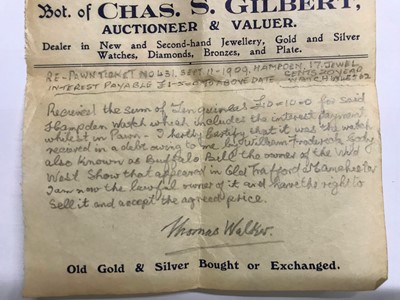 Bot. of CHAS. S. GILBERT,
AUCTIONEER & VALUER.
Dealer in New and Second-hand Jewellery, Gold and Silver
Watches, Diamonds, Bronzes, and Plate.
RE-PAWN TICKET NO 431. SEPT 11-1909, HAMPDEN, 17. JEWEL
GENTS 20 YEAR
INTEREST PAYABLE £1-5- TO ABOVE DATE WATCH
Received the sum of Ten guineas £10-10-0 for said
Hampden Watch which includes the interest payment
whilst in Pawn - I hereby Certify that it was the watch
received in a debt owing to me by William Frederick Cody
also known as Buffalo Bill the owner of the Wild
West Show that appeared in Old Trafford Manchester
I am now the lawful owner of it and have the right to
Sell it and accept the agreed price.
Thomas Walker.
Old Gold & Silver Bought or Exchanged.